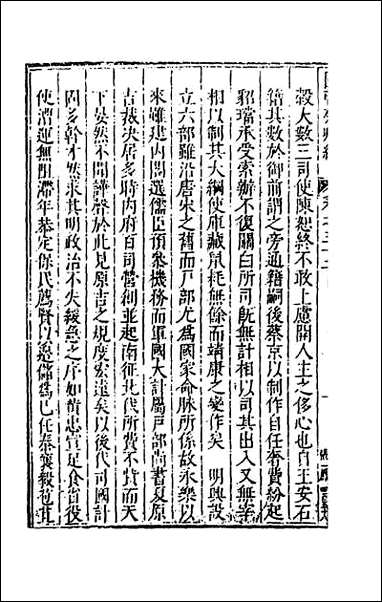 穀大數三司使陳恕終不敢上慮開人主之侈心也自王安石
籍其數於御前謂之旁通籍嗣後蔡京以制作自任奢費紛起
貂璫承受索辦不復關白所司旣無計相以司其出入又無宰
相以制其大綱使庫藏鼠耗無餘而靖康之變作矣 明興設
立六部雖沿唐宋之舊而戸部尤爲國家命脉所係故永樂以
來雖建内閣選儒臣預參機務而軍國大計屬戸部尚書夏原
吉裁决居多時内府百司營創並起南征北伐所費不貲而天
下晏然不聞譁聲於此見原吉之規度宏遠矣以後代司國計
固多幹才然求其明政治不失緩急之序如黄忠宣足食省役
使漕運無阻滯年恭定保民薦賢以邊儲爲已任秦襄毅